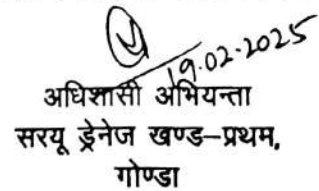 19.02.2025
अधिशासी अभियन्ता
सरयू ड्रेनेज खण्ड–प्रथम,
गोण्डा